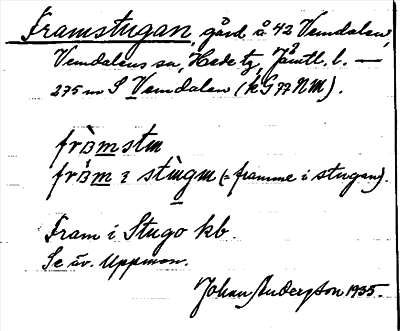 Framstugan, gård å 42 Vemdalen,
Vemdalens sn, Hede tg, Jämtl. l. —
275 m S Vemdalen (k G 77 NM).
främstm
främ i stùgm (= framme i stugan).
Fram i Stugo kb.
Se äv. Uppmon.
Johan Anderson 1935.